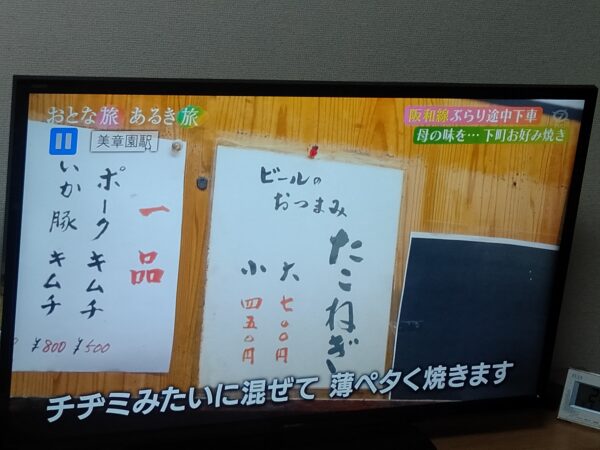 おとな旅 あるき旅
美章園駅
阪和線ぶらり途中下車
母の味を… 下町お好み焼き
一品
ポークキムチ
¥500
いか豚 キムチ
¥800
ビールの
おつまみ
たこねぎ
大 七〇〇円
小 四五〇円
チヂミみたいに混ぜて 薄ペタく焼きます